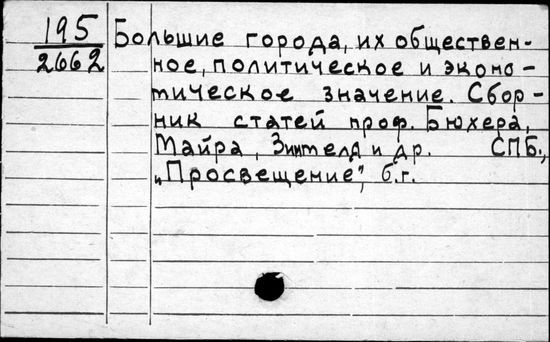 195
2662
Большие города, их обществен-
ное, политическое и эконо-
мическое значение. Сбор-
ник статей проф. Бюхера,
Майра, Зиммеля и др. СПБ.,
„Просвещение", б.г.